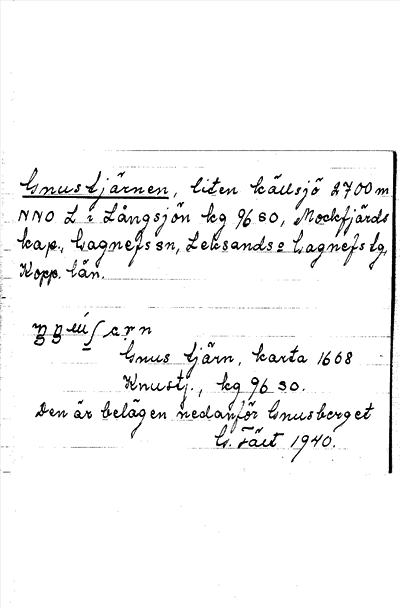 Gnustjärnen, liten källsjö 2700 m
NNO L. Långsjön kg 96 SO, Mockfjärds
kap., Gagnefs sn, Leksands o Gagnefs tg,
Kopp. län.
Gnus tjärn, karta 1668
Knustj., kg 96 SO.
Den är belägen nedanför Gnusberget
G. Fält 1940.